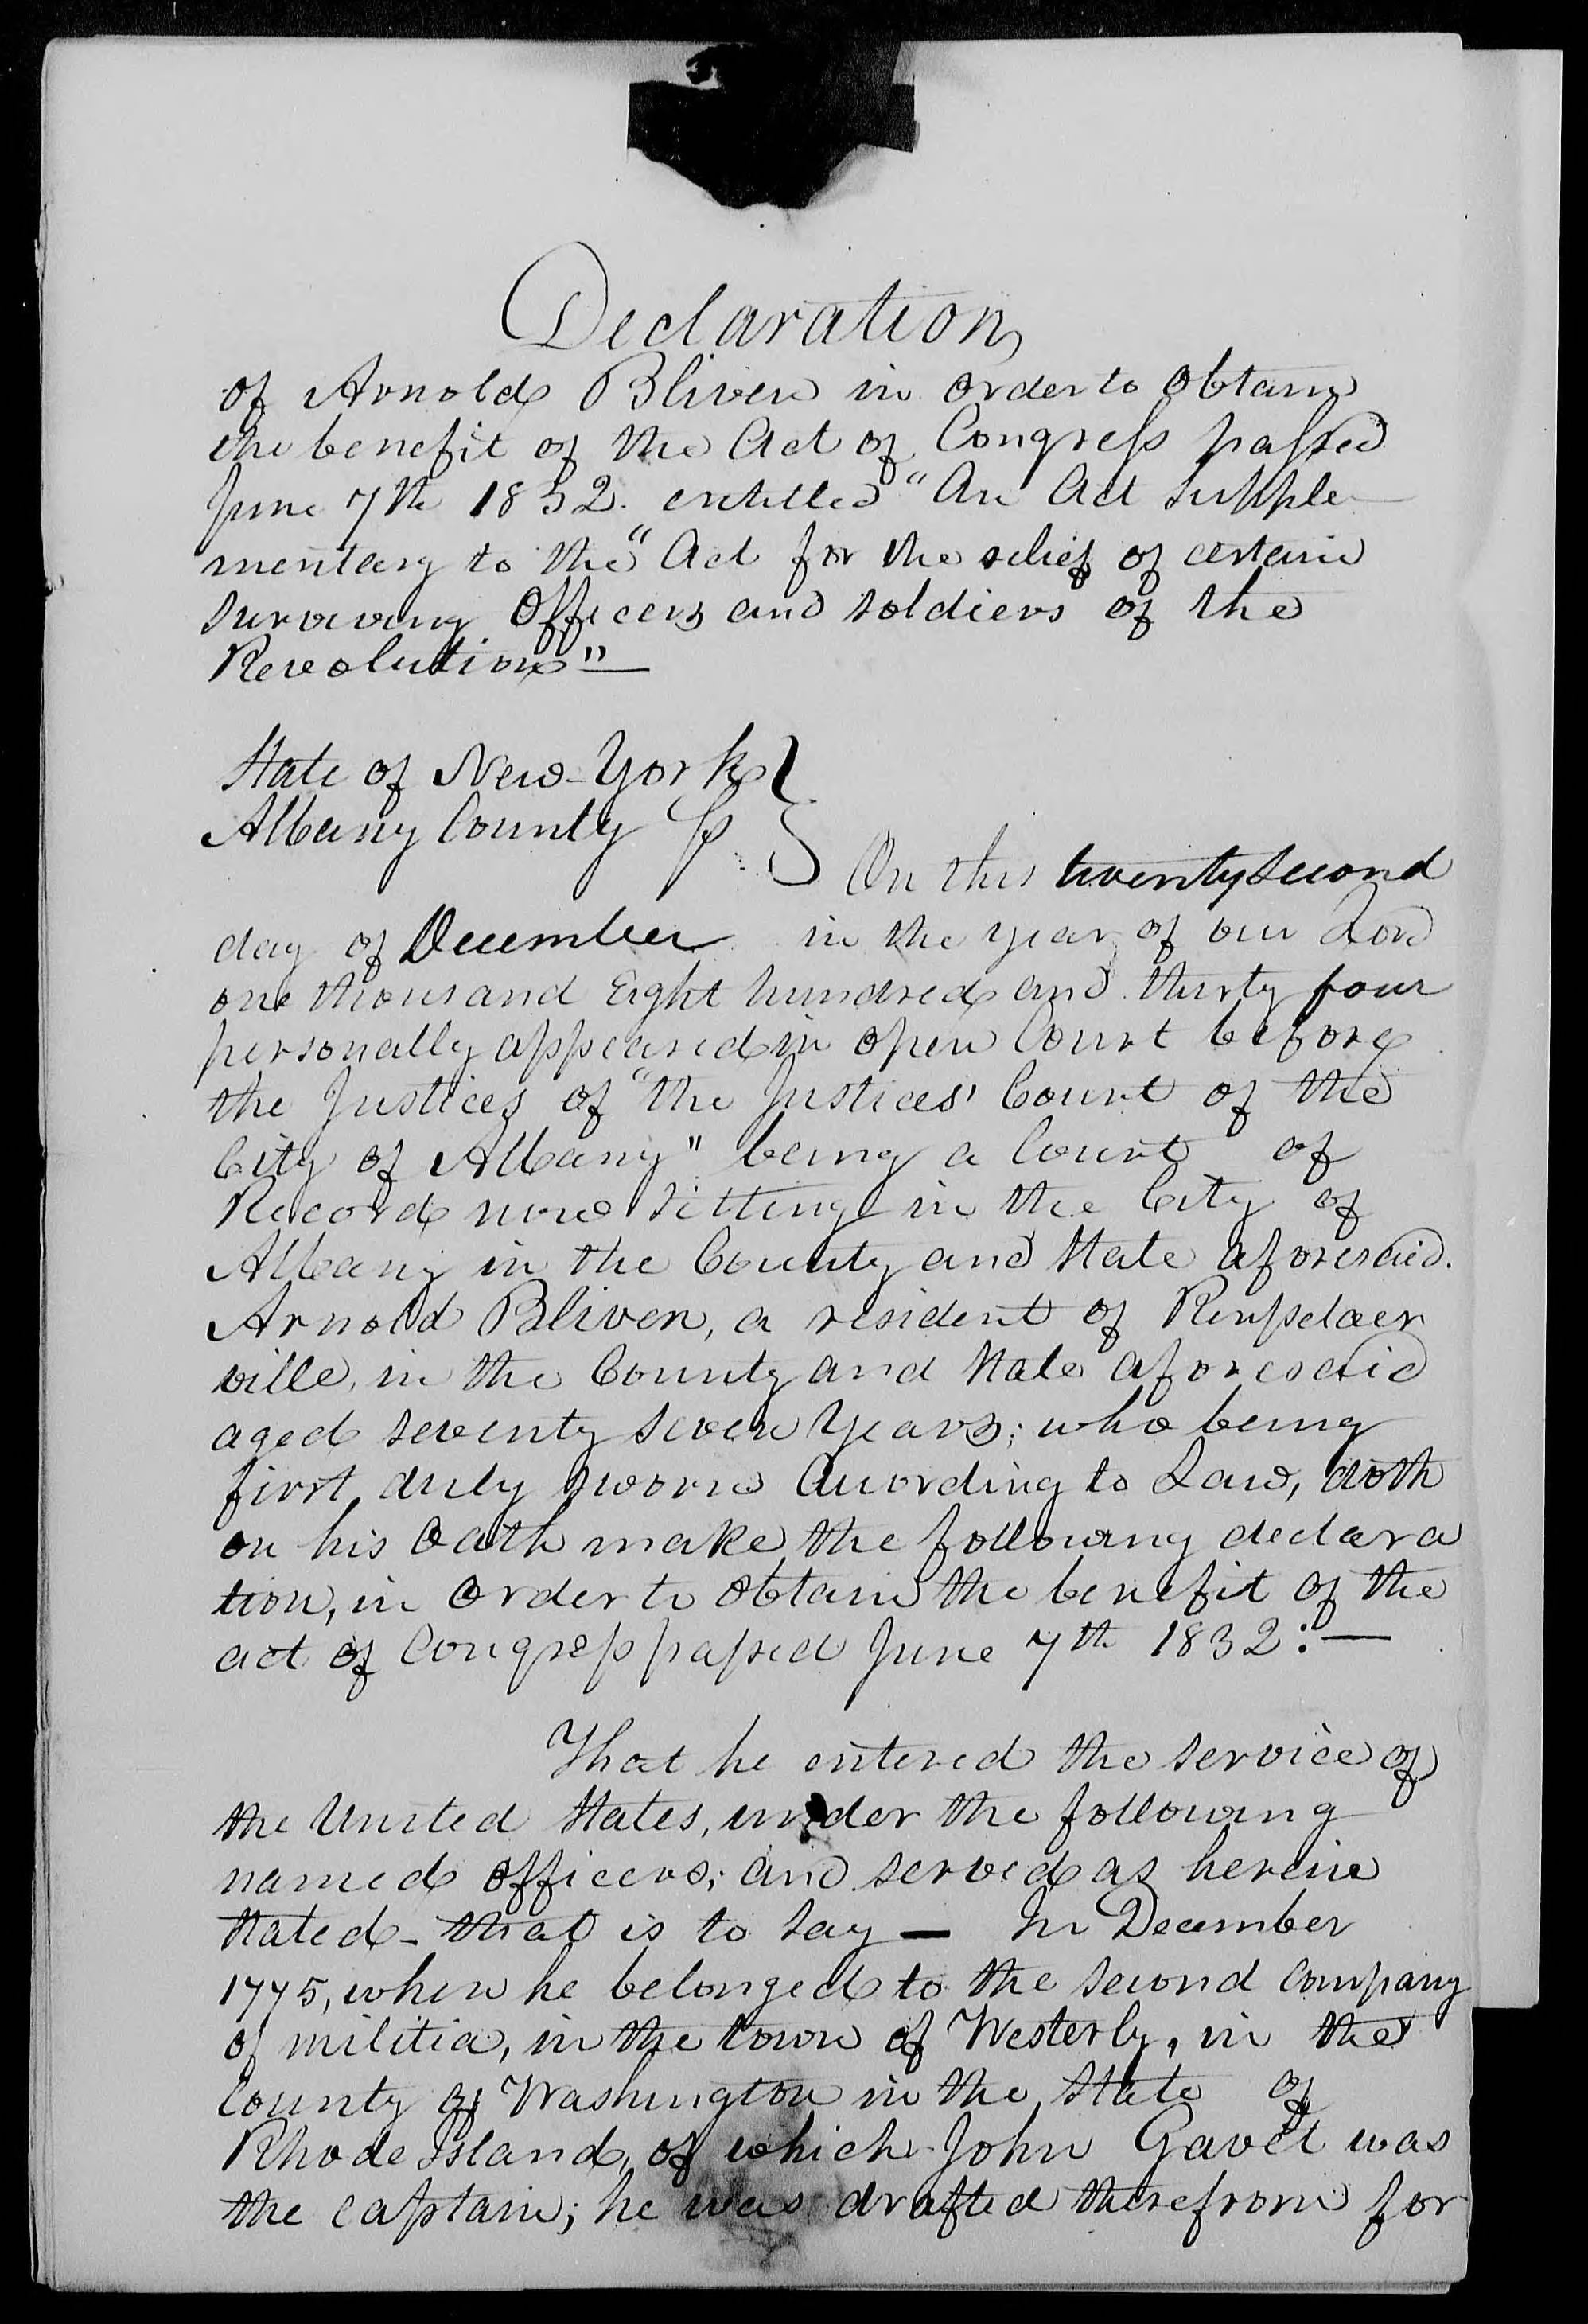 Declaration
of Arnold Bliven in order to obtain
the benefit of the Act of Congress passed
June 7th 1832. entitled "An Act Supple-
mentary to the "Act for the relief of certain
surviving Officers and soldiers of the
Revolution"—
State of New-York }
Albany County ss }
On this twenty second
day of December in the year of our Lord
one thousand Eight hundred and thirty four
personally appeared in open Court before
the Justices of "the Justices' Court of the
City of Albany" being a Court of
Record now sitting in the City of
Albany in the County and State aforesaid.
Arnold Bliven, a resident of Rensselaer
ville, in the County and State aforesaid
aged seventy seven Years; who being
first duly sworn According to Law, doth
on his Oath make the following declara
tion, in Order to obtain the benefit of the
act of Congress passed June 7th 1832:—
That he entered the service of
the United States, under the following
named officers; and served as herein
stated - that is to say — In December
1775, when he belonged to the second company
of militia, in the town of Westerly, in the
County of Washington in the State of
Rhode Island, of which John Gavet was
the captain; he was drafted therefrom for